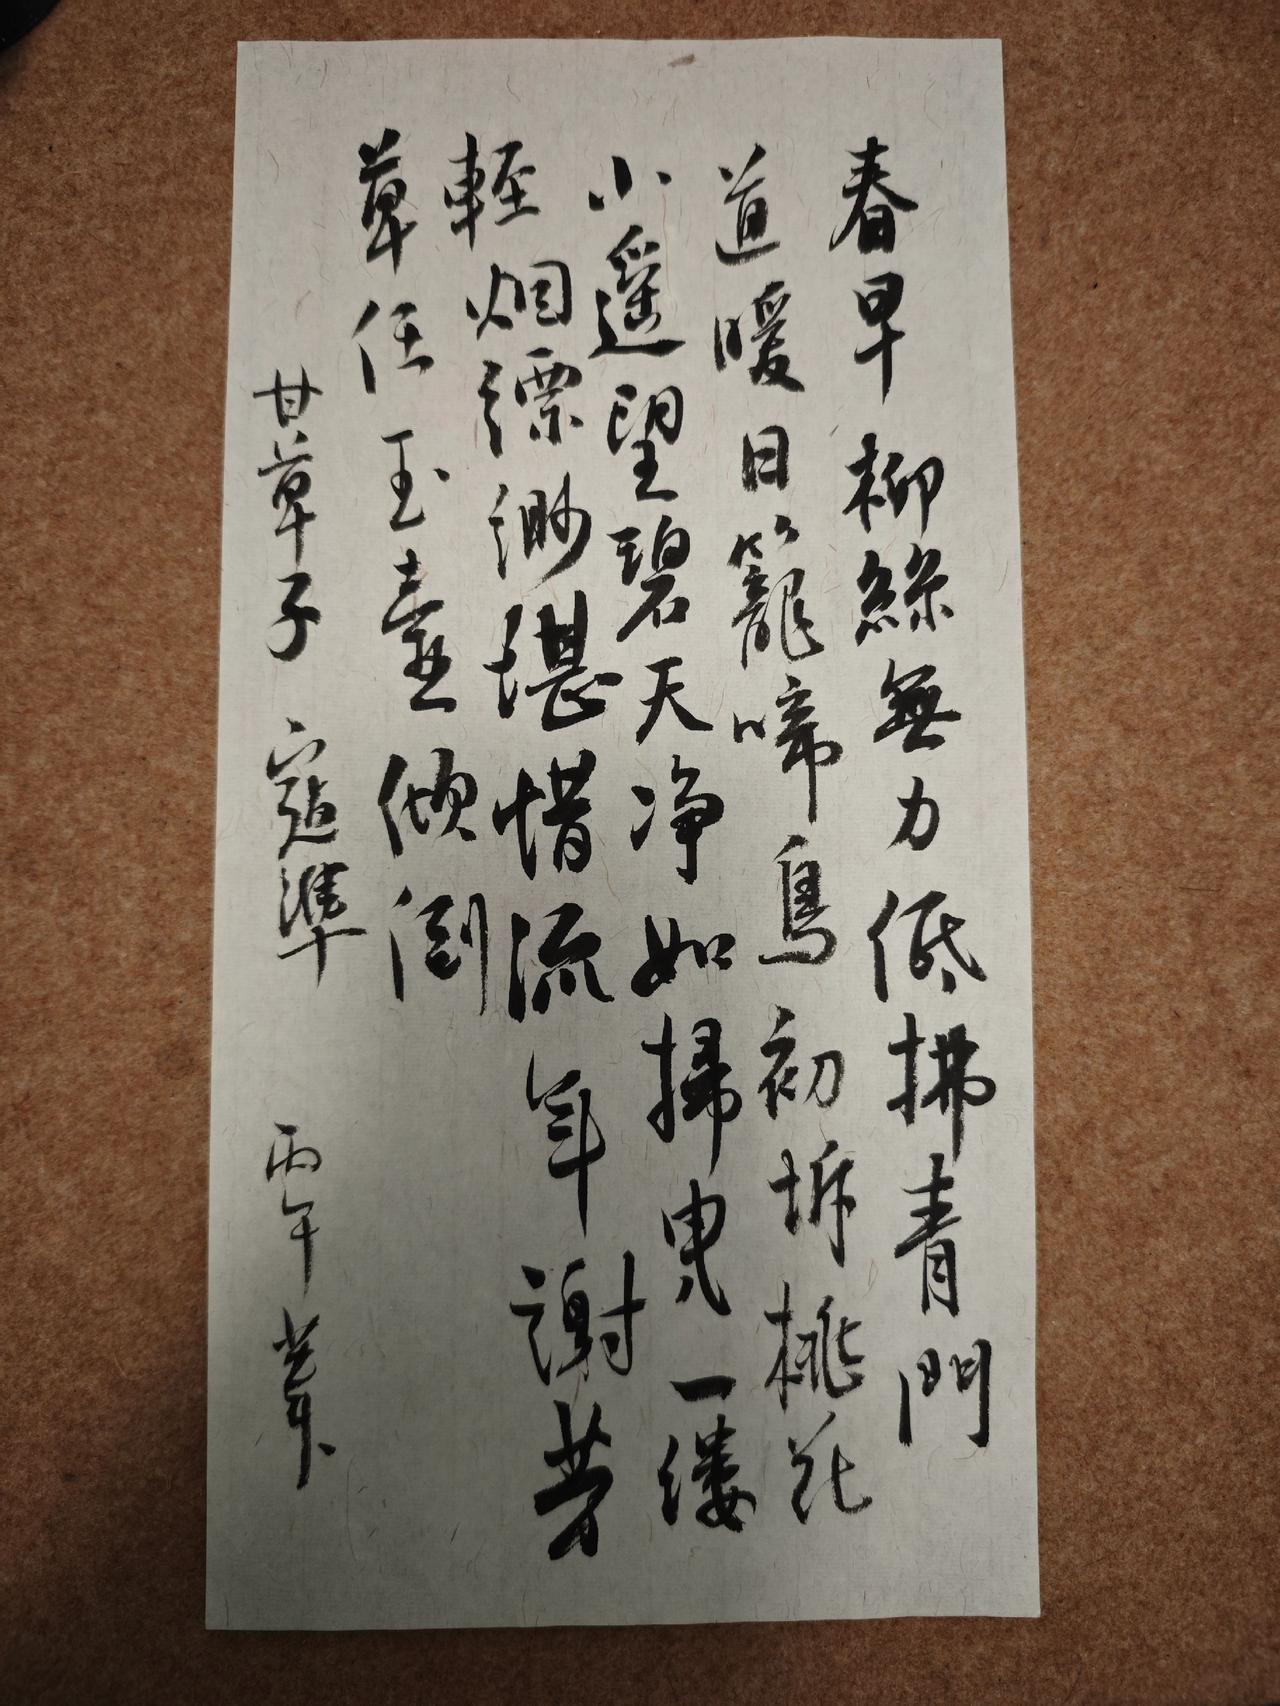 春早柳絲無力低拂青門
道暖日籠啼鳥初坼桃花
小遥望碧天净如掃曳一缕
輕烟縹渺堪惜流年謝芳
草任玉臺傾倒
甘草子 寇準 丙午